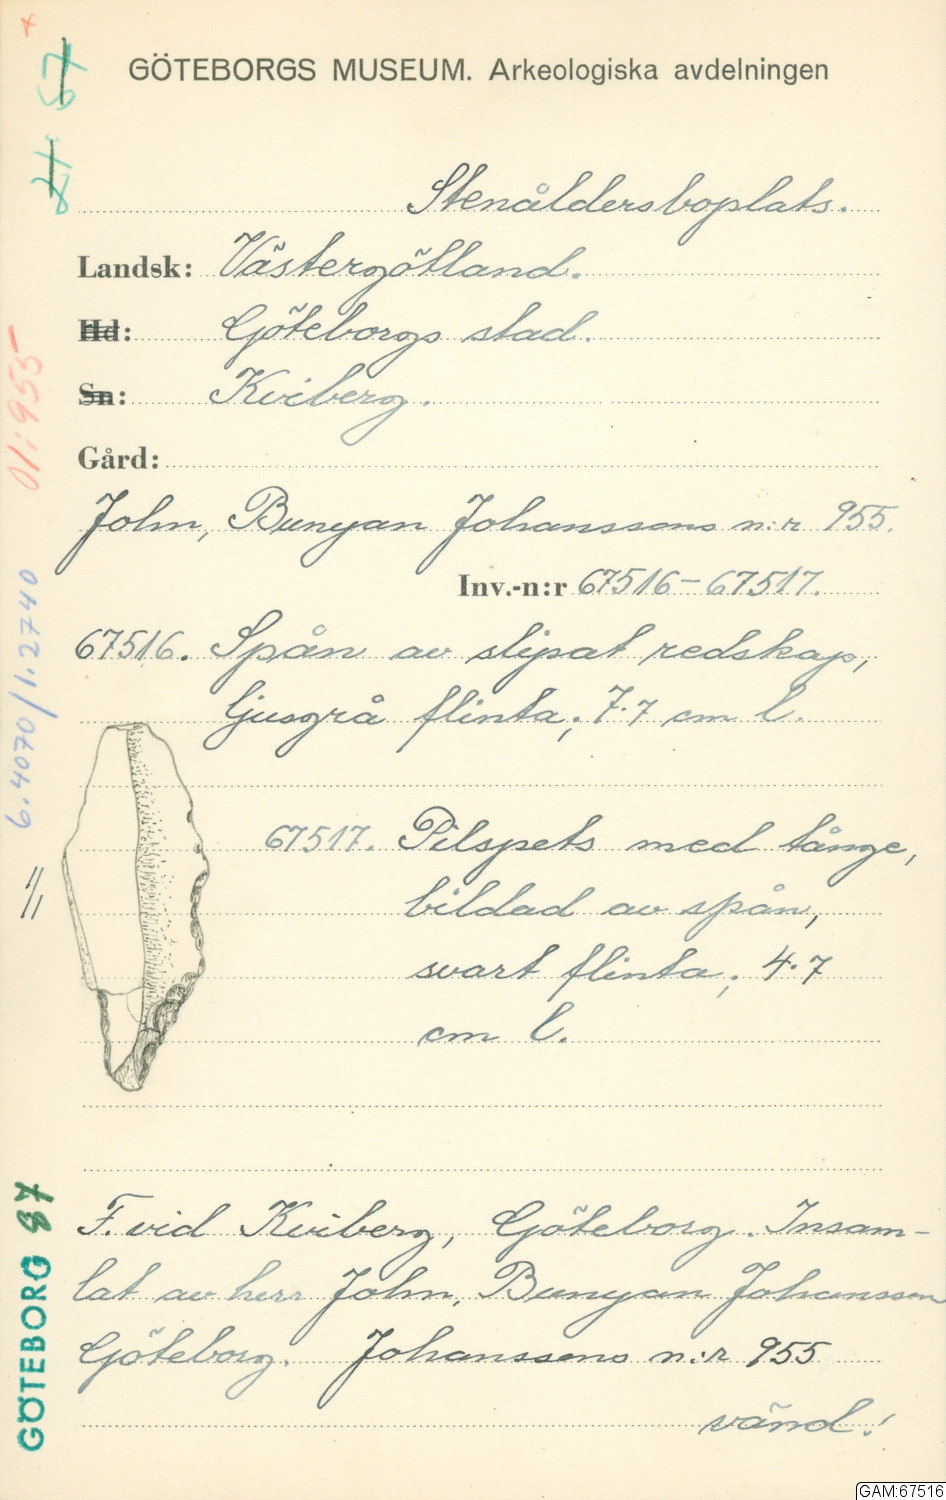 GÖTEBORGS MUSEUM. Arkeologiska avdelningen
Stenåldersboplats.
Landsk: Västergötland.
Hd: Göteborgs stad.
Sn: Kviberg.
Gård:
John, Bunyan Johanssons n:r 955.
Inv.-n:r 67516-67517.
67516. Spån av slipat redskap,
ljusgrå flinta; 7.7 cm l.
67517. Pilspets med tånge,
bildad av spån,
svart flinta; 4.7
cm l.
1/1
F. vid Kviberg, Göteborg. Insam-
lat av herr John, Bunyan Johansson
Göteborg. Johanssons n:r 955
vänd!
GÖTEBORG 87
6.4070/1.2740
01:955
67
GAM:67516